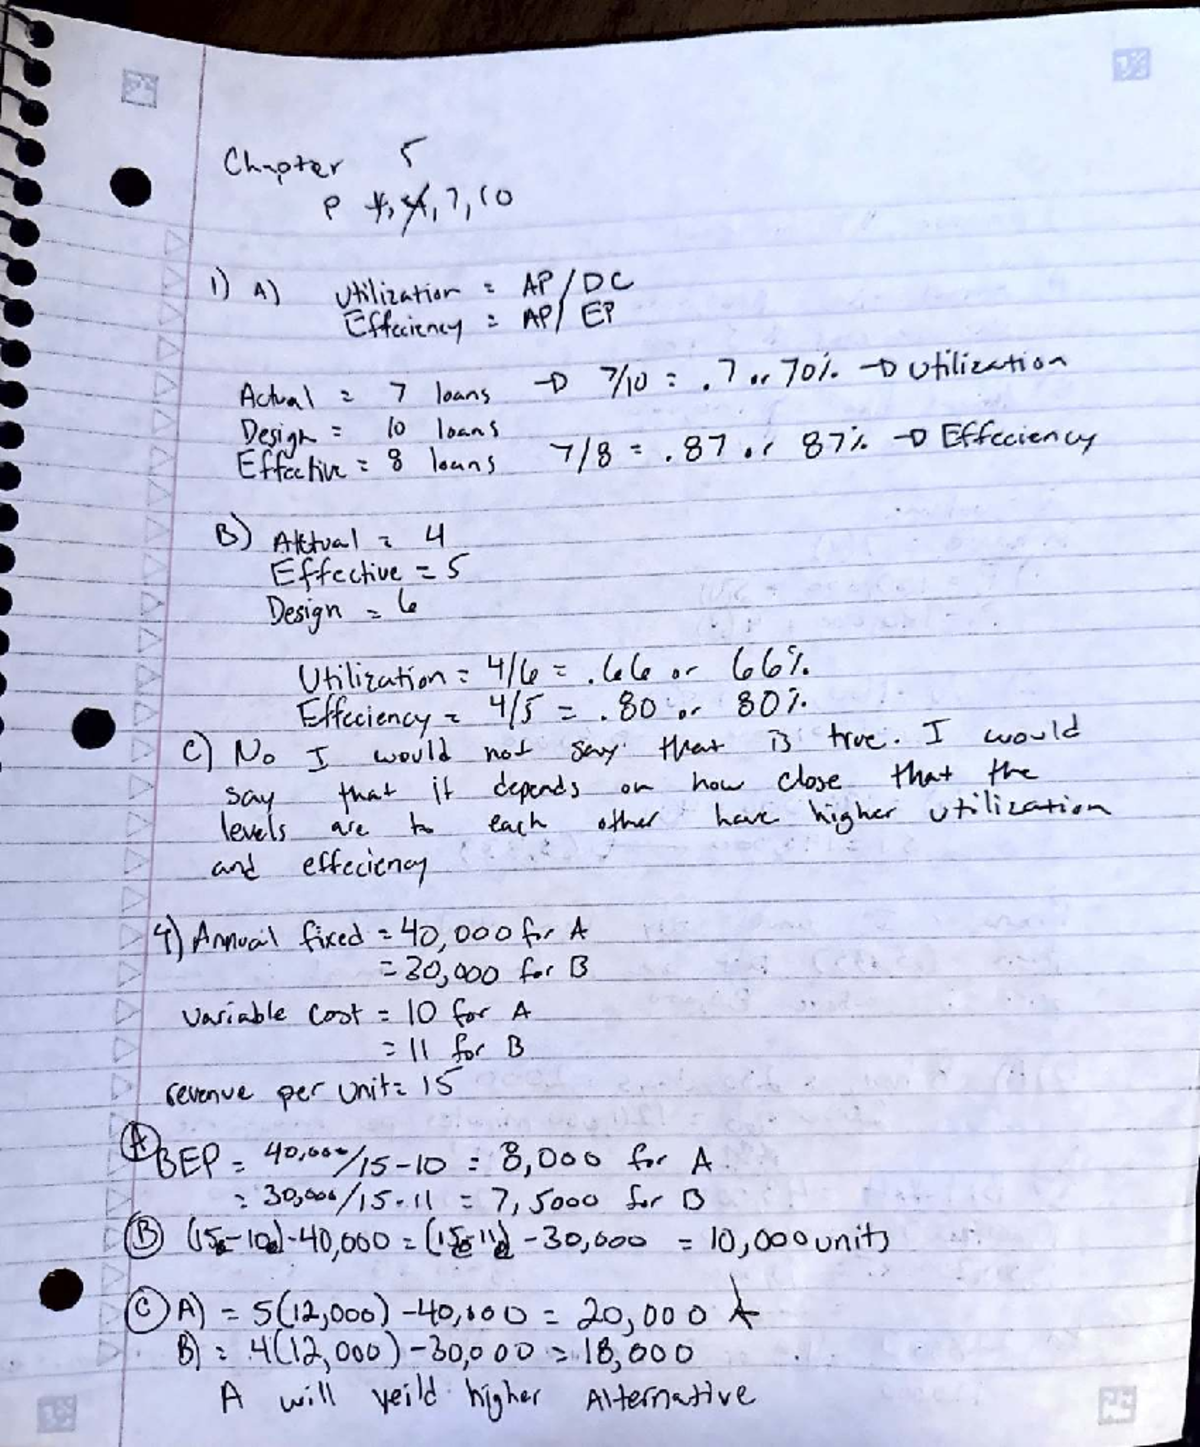 Chapter 5
P 1, 4, 7, 10
1) A) Utilization = AP/DC
Effeciency = AP/EP
Actual = 7 loans → 7/10 = .7 or 70% → Utilization
Design = 10 loans
Effective = 8 loans 7/8 = .87 or 87% → Effeciency
B) Aktual = 4
Effective = 5
Design = 6
Utilization = 4/6 = .66 or 66%
Effeciency = 4/5 = .80 or 80%
C) No I would not say that is true. I would
say that it depends on how close that the
levels are to each other have higher utilization
and effeciency
4) Annual fixed = 40,000 for A
= 30,000 for B
variable cost = 10 for A
= 11 for B
revenue per unit = 15
A BEP = 40,000/15-10 = 8,000 for A
= 30,000/15-11 = 7,5000 for B
B (15Q-10Q)-40,000 = (15Q-11Q)-30,000 = 10,000 units
C A) = 5(12,000)-40,000 = 20,000
B) = 4(12,000)-30,000 = 18,000
A will yeild higher Alternative